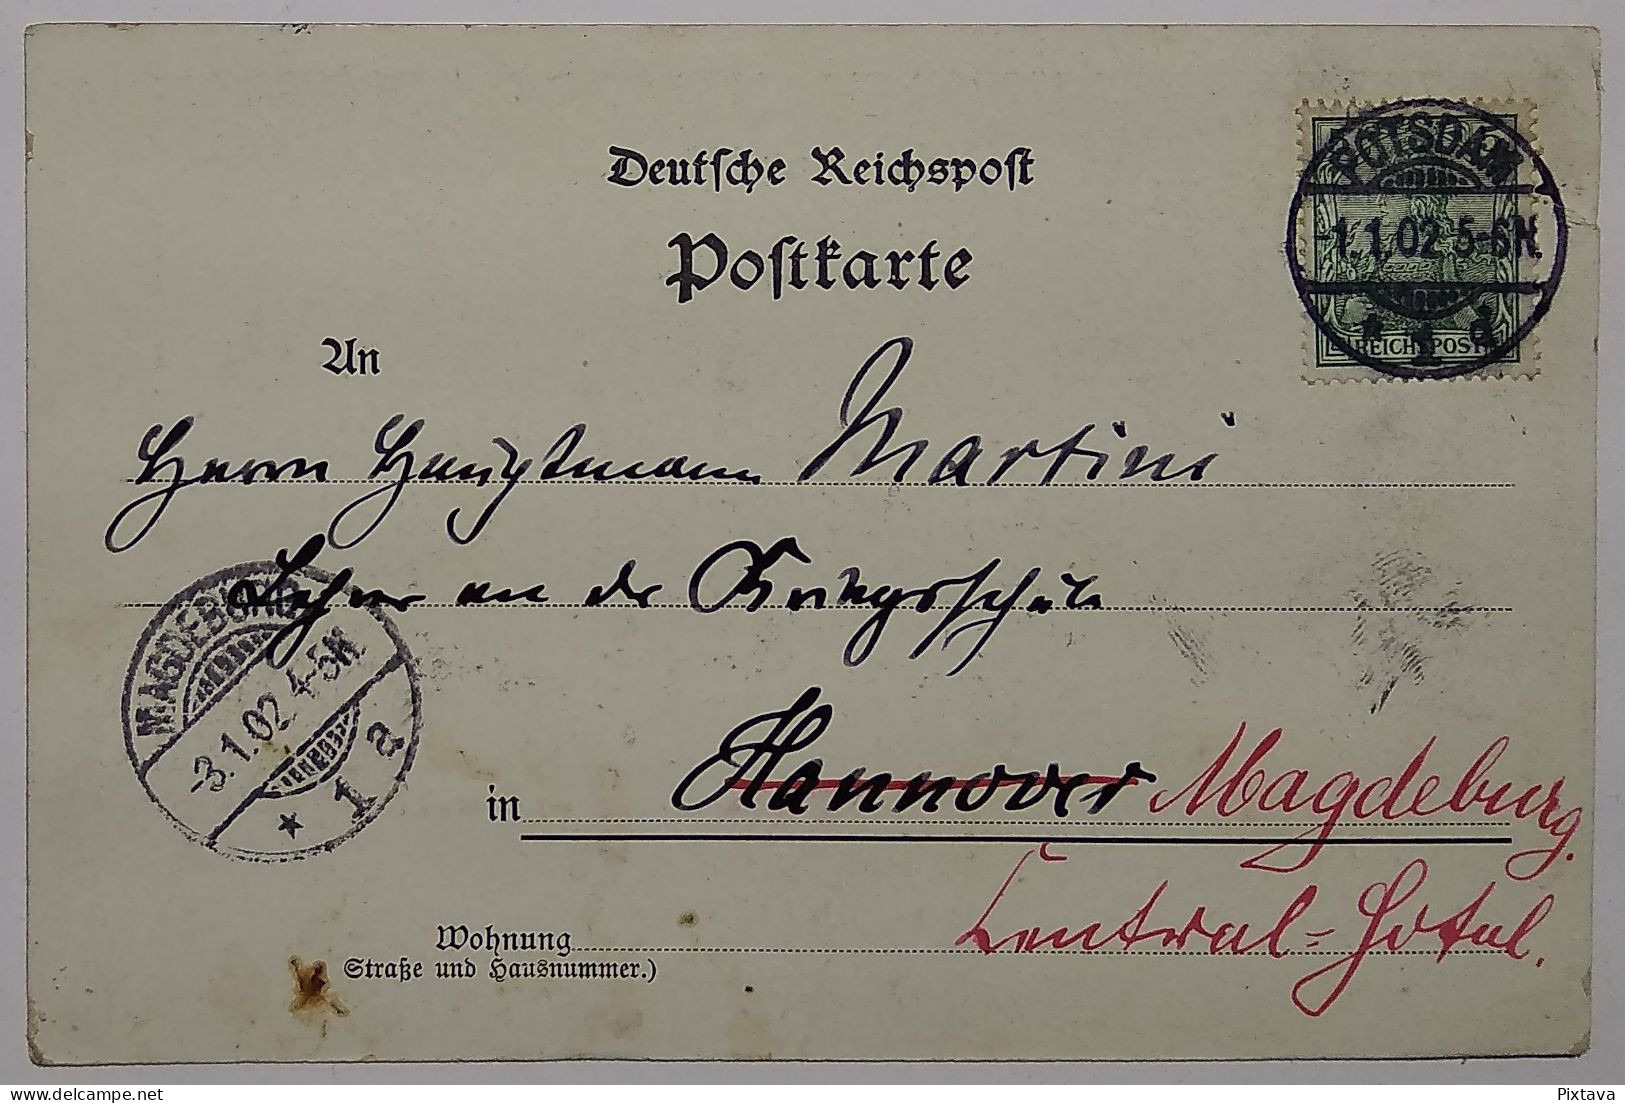 Deutsche Reichspost
Postkarte
POTSDAM
-1.1.02.5-6N.
* 1 d
REICHSPOST
An
Herrn Hauptmann Martini
Lehrer an der Kriegsschule
MAGDEBURG
-3.1.02.4-5N.
* 1 a
in Hannover Magdeburg.
Central-Hotel.
Wohnung
Straße und Hausnummer.)
delcampe.net
Pixtava